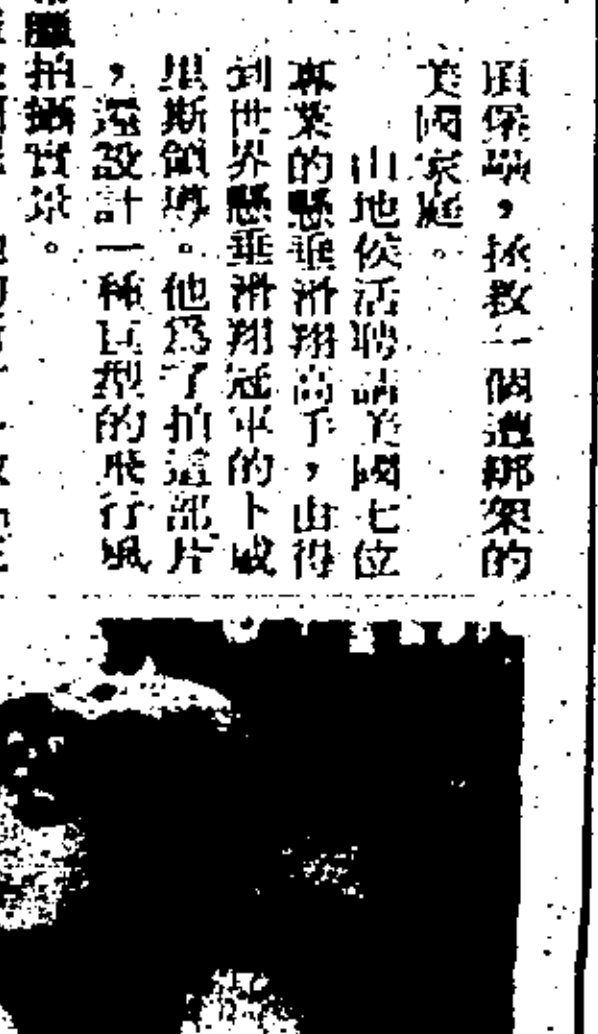 頂堡壘，拯救一個遭綁架的
美國家庭。
山地侯活聘請美國七位
專業的懸垂滑翔高手，由得
到世界懸垂滑翔冠軍的卜威
里斯領導。他爲了拍這部片
，還設計一種巨型的飛行風
臘拍攝實景。